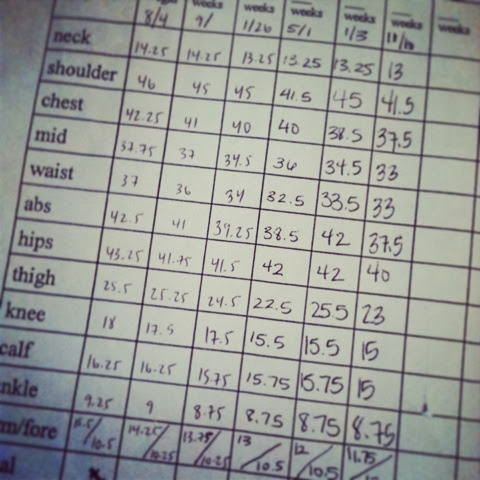 weeks weeks weeks weeks weeks weeks
8/4 9/ 1/26 5/1 1/3
neck 14.25 14.25 13.25 13.25 13.25 13
shoulder 46 45 45 41.5 45 41.5
chest 42.25 41 40 40 38.5 37.5
mid 37.75 37 34.5 36 34.5 33
waist 37 36 34 32.5 33.5 33
abs 42.5 41 39.25 38.5 42 37.5
hips 43.25 41.75 41.5 42 42 40
thigh 25.5 25.25 24.5 22.5 25.5 23
knee 18 17.5 17.5 15.5 15.5 15
calf 16.25 16.25 15.75 15.75 15.75 15
nkle 9.25 9 8.75 8.75 8.75 8.75
m/fore 15.5/10.5 14.25/10.25 13.75/10.25 13/10.5 12/10.5 11.75/
al